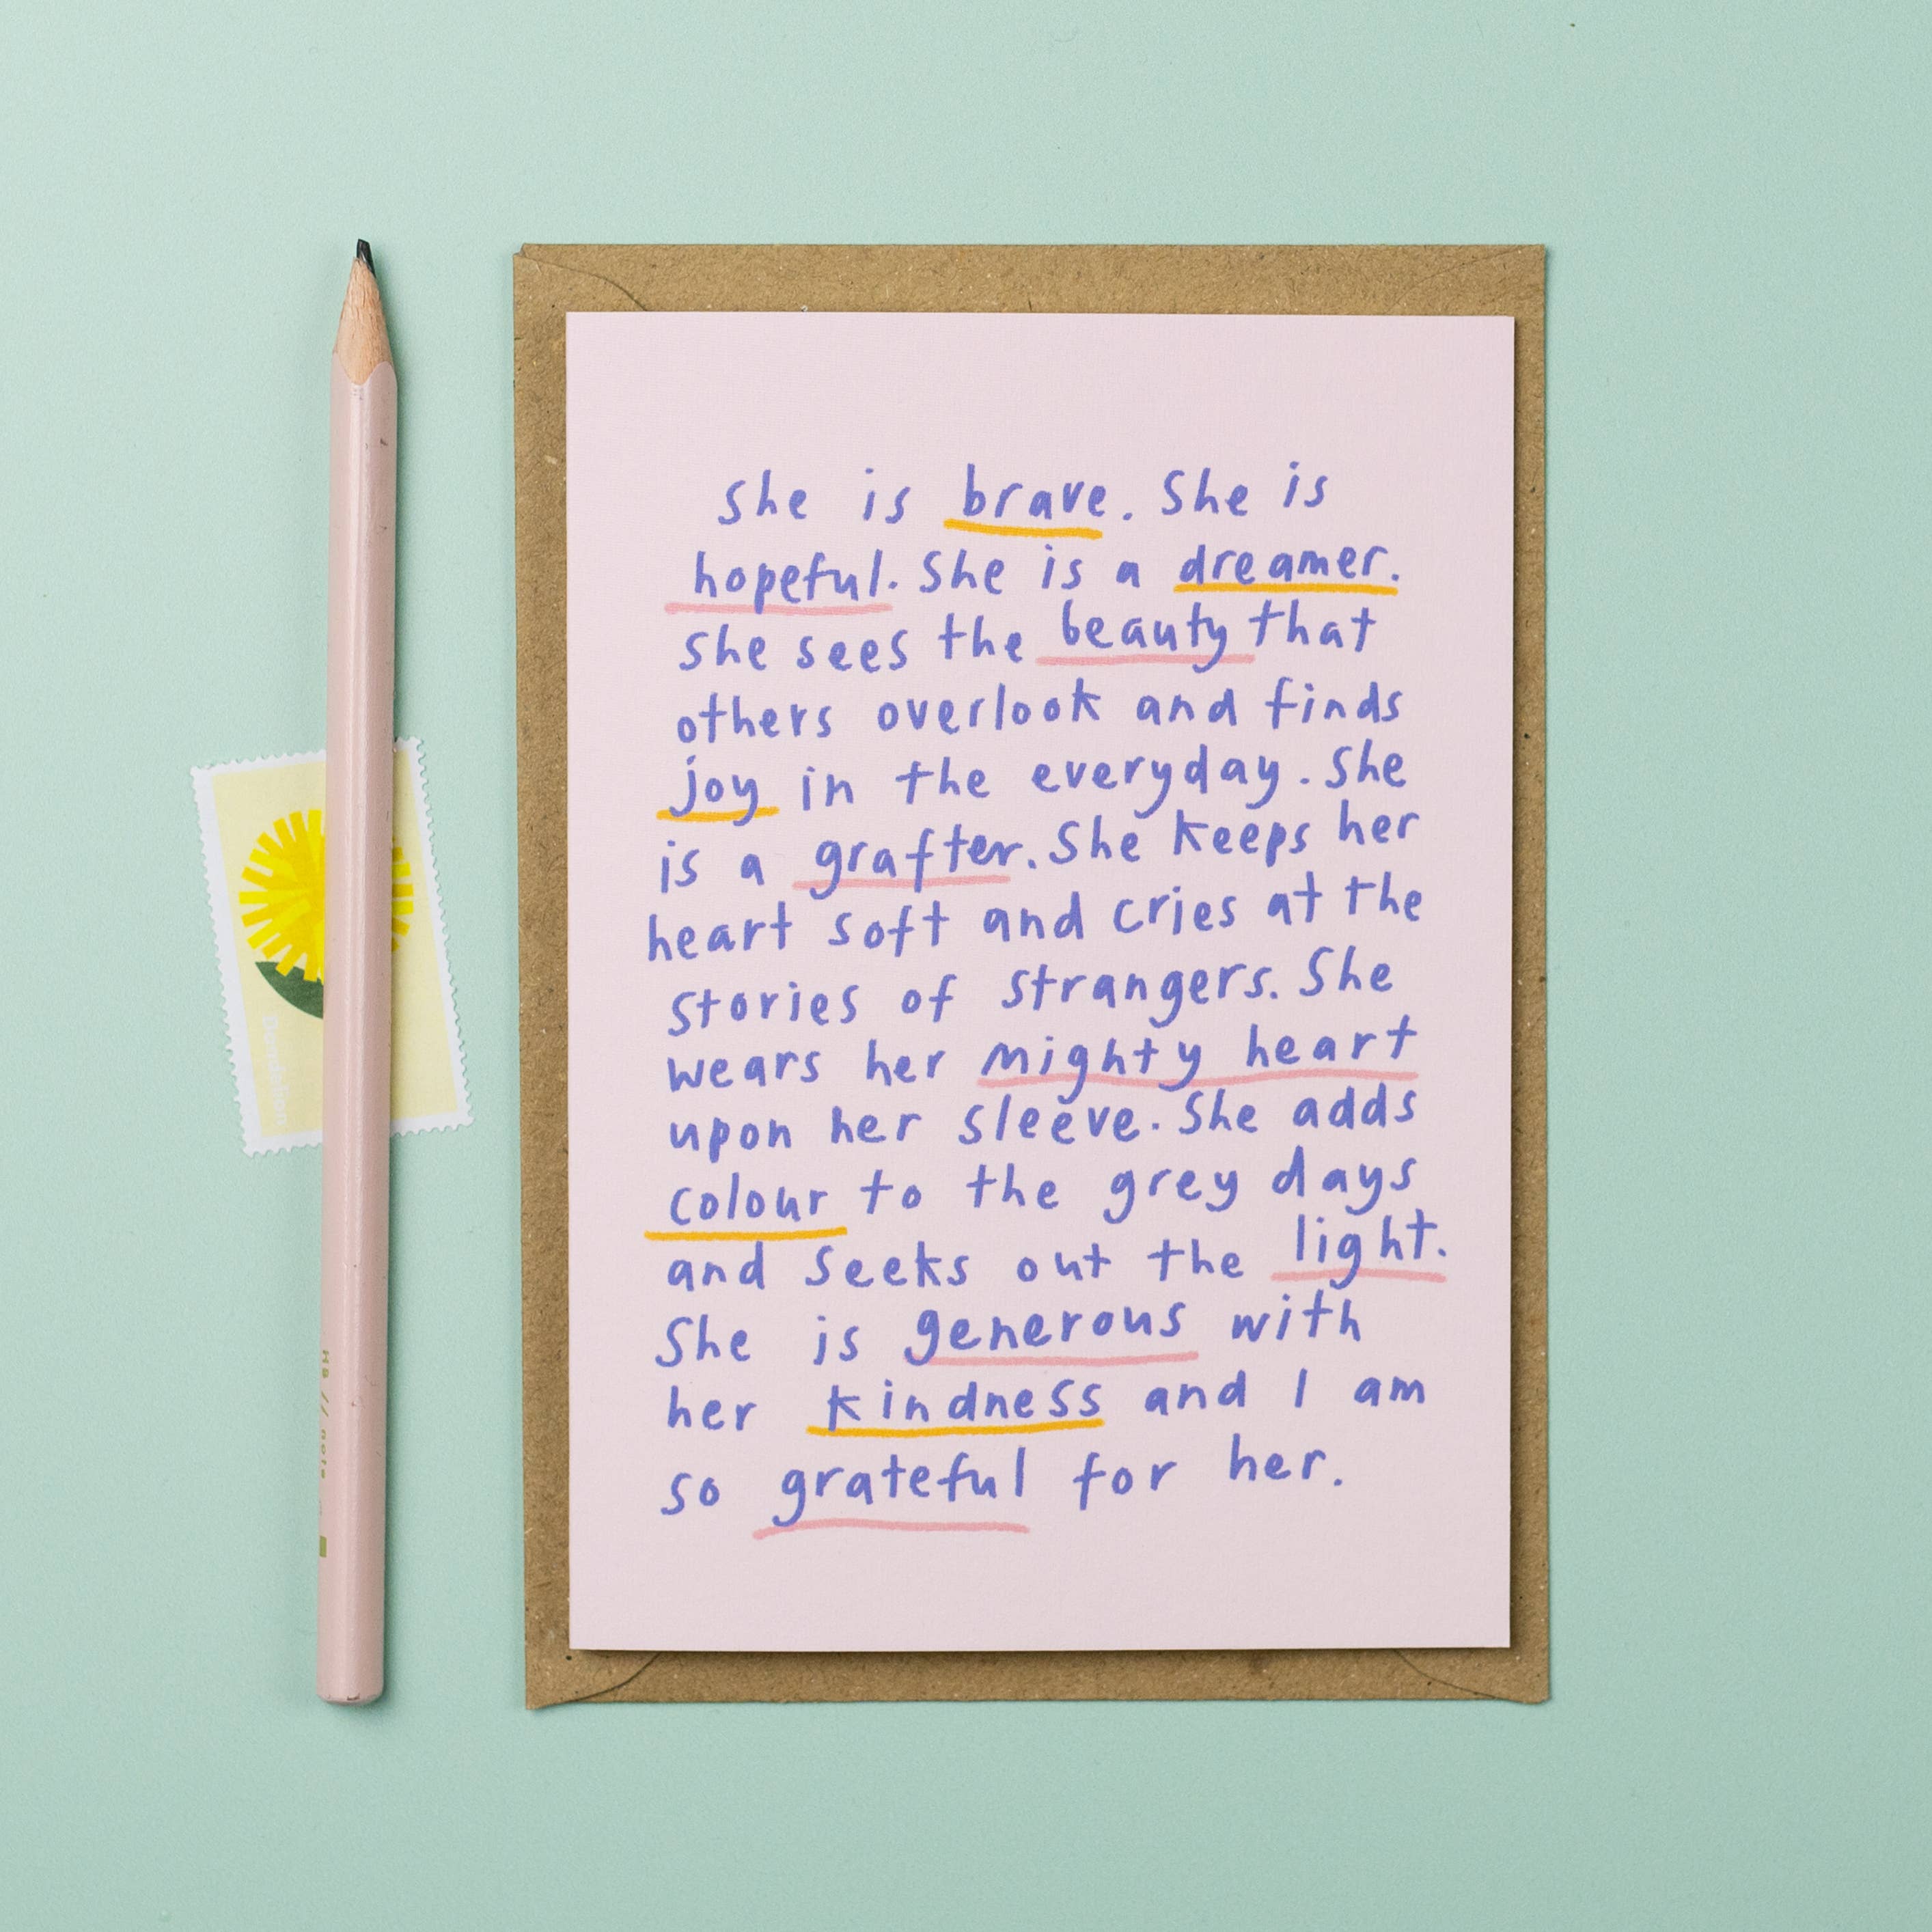 She is brave. She is
hopeful. She is a dreamer.
She sees the beauty that
others overlook and finds
joy in the everyday. She
is a grafter. She keeps her
heart soft and cries at the
stories of strangers. She
wears her mighty heart
upon her sleeve. She adds
colour to the grey days
and seeks out the light.
She is generous with
her kindness and I am
so grateful for her.
Dandelion
HB //